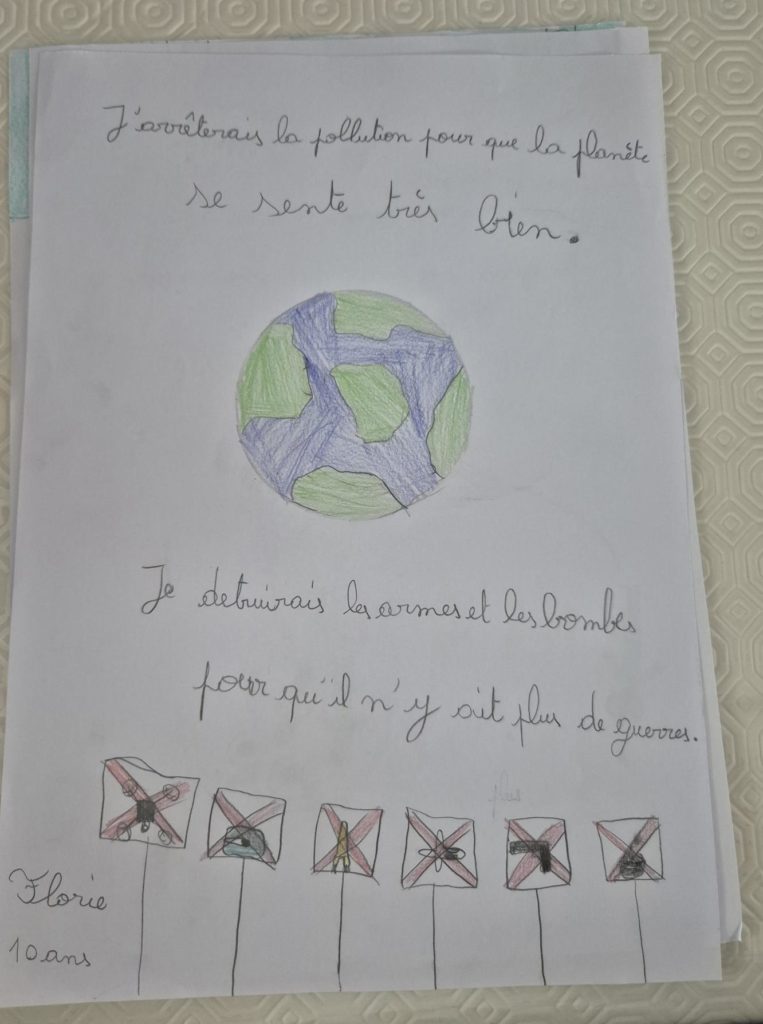 J'arrêterais la pollution pour que la planète
se sente très bien.
Je detruirais les armes et les bombes
pour qu'il n'y ait plus de guerres.
plus
Florie
10 ans